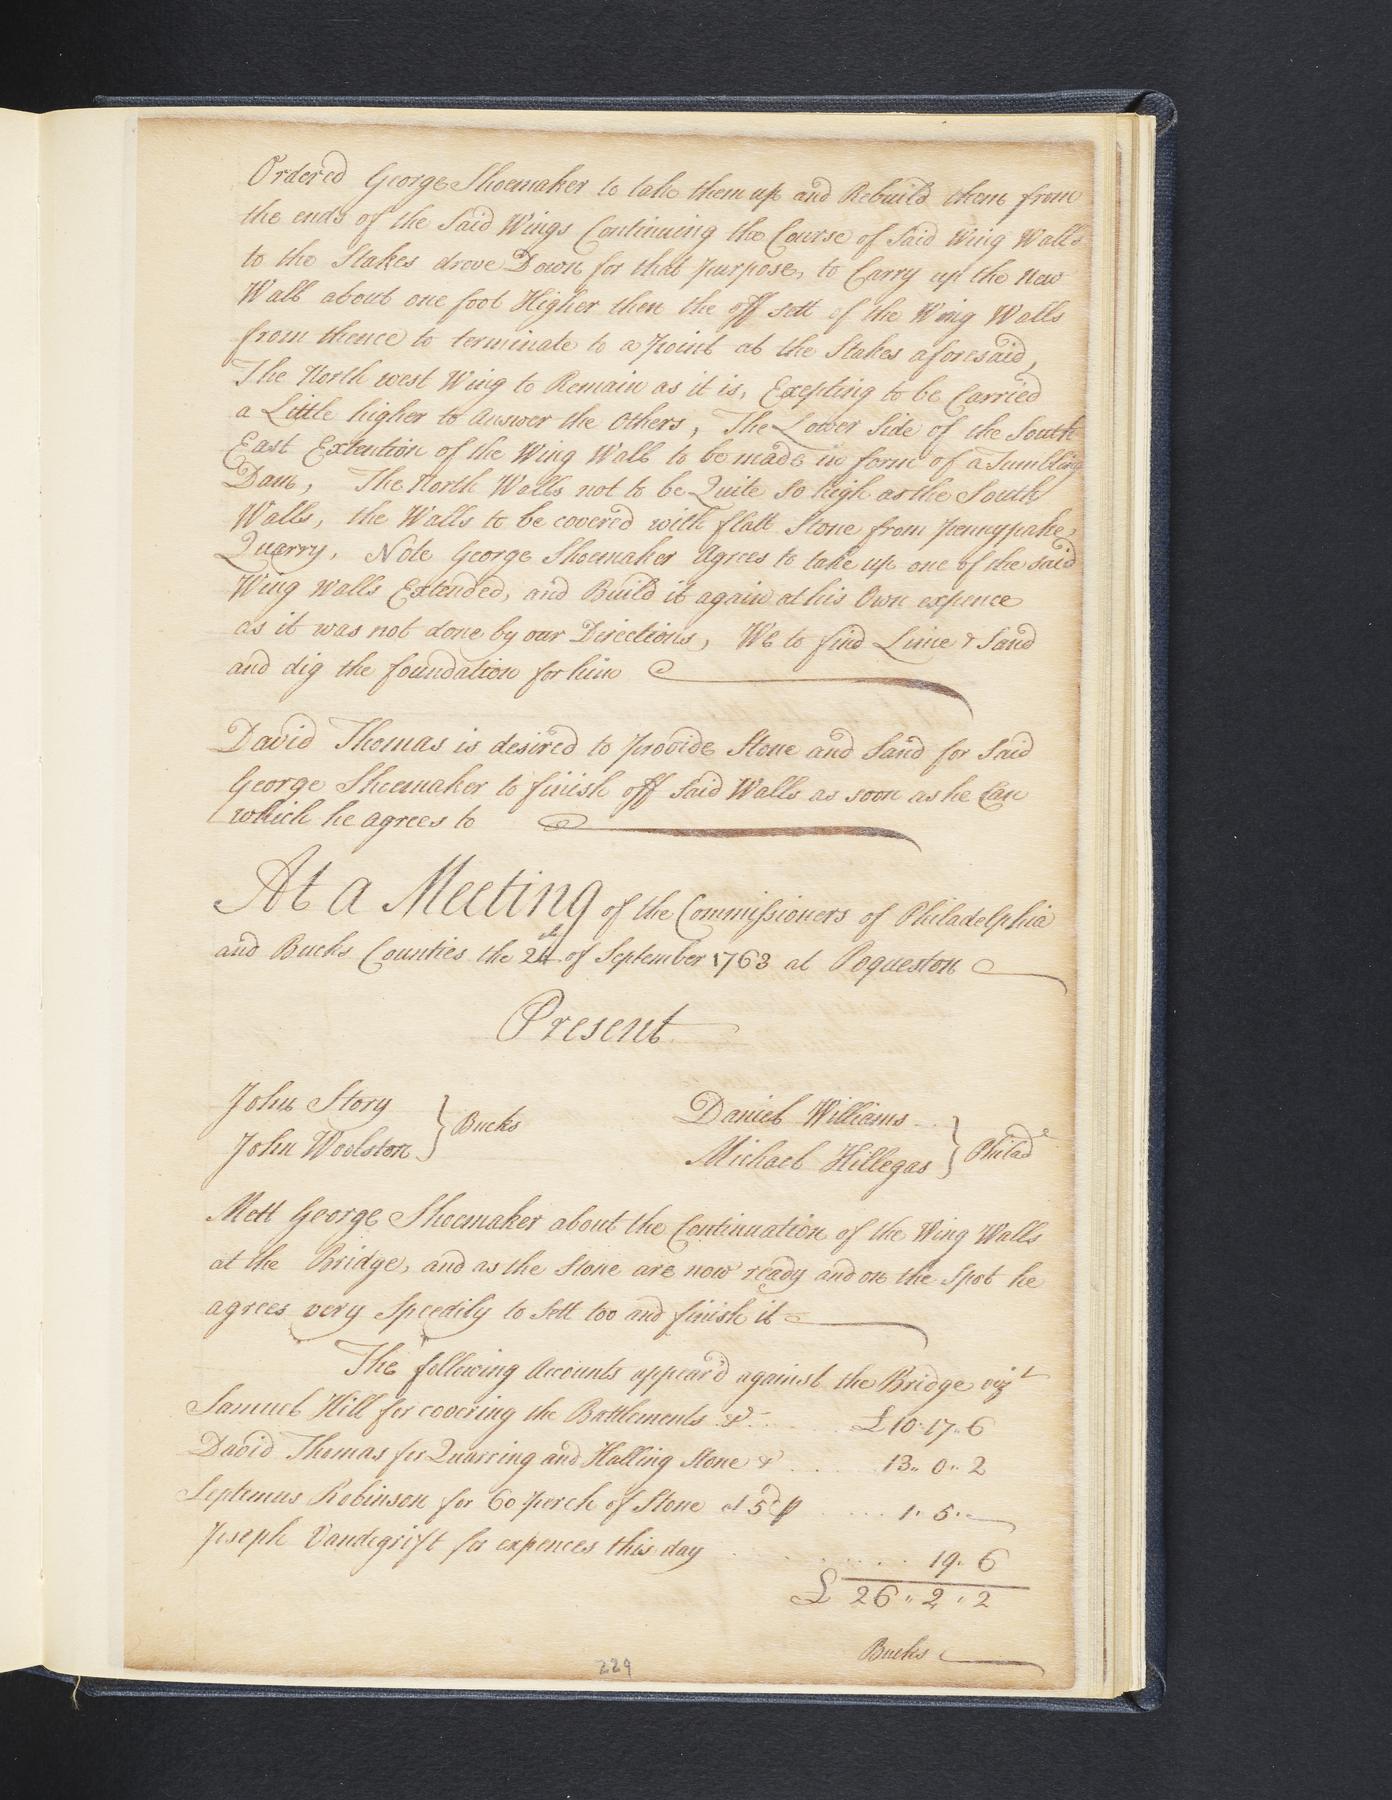 Ordered George Shoemaker to take them up and Rebuild them from
the ends of the Said Wings Continuing the Course of Said Wing Walls
to the Stakes drove Down for that purpose, to Carry up the New
Wall about one foot Higher then the off sett of the Wing Walls
from thence to terminate to a point at the Stakes aforesaid,
The North west Wing to Remain as it is, Exepting to be Carried
a Little higher to Answer the Others, The Lower Side of the South
East Extention of the Wing Wall to be made in form of a Tumbling
Dam, The North Walls not to be Quite So high as the South
Walls, the Walls to be covered with flatt Stone from Pennypake
Quarry, Note George Shoemaker Agrees to take up one of the said
Wing Walls Extended, and Build it again at his Own expence
as it was not done by our Directions, We to find Lime & Sand
and dig the foundation for him
David Thomas is desired to provide Stone and Sand for Said
George Shoemaker to finish off Said Walls as soon as he Can
which he agrees to
At a Meeting of the Commissioners of Philadelphia
and Bucks Counties the of September 1763 at Poqueston
Present
John Story
Daniel Williams
Bucks
John Woolston
Michael Hillegas
Philad
Mett George Shoemaker about the Continuation of the Wing Walls
at the Bridge, and as the Stone are now ready and on the Spot he
agrees very Speedily to Sett too and finish it
The following Accounts appear'd against the Bridge vizt
Samuel Hill for covering the Battlements &c £10..17..6
David Thomas for Quarring and Halling Stone &c 13..0..2
Septimus Robinson for 60 perch of Stone at 5d p 1..5..
Joseph Vandegrift for expences this day 19..6
£26..2..2
Bucks
229